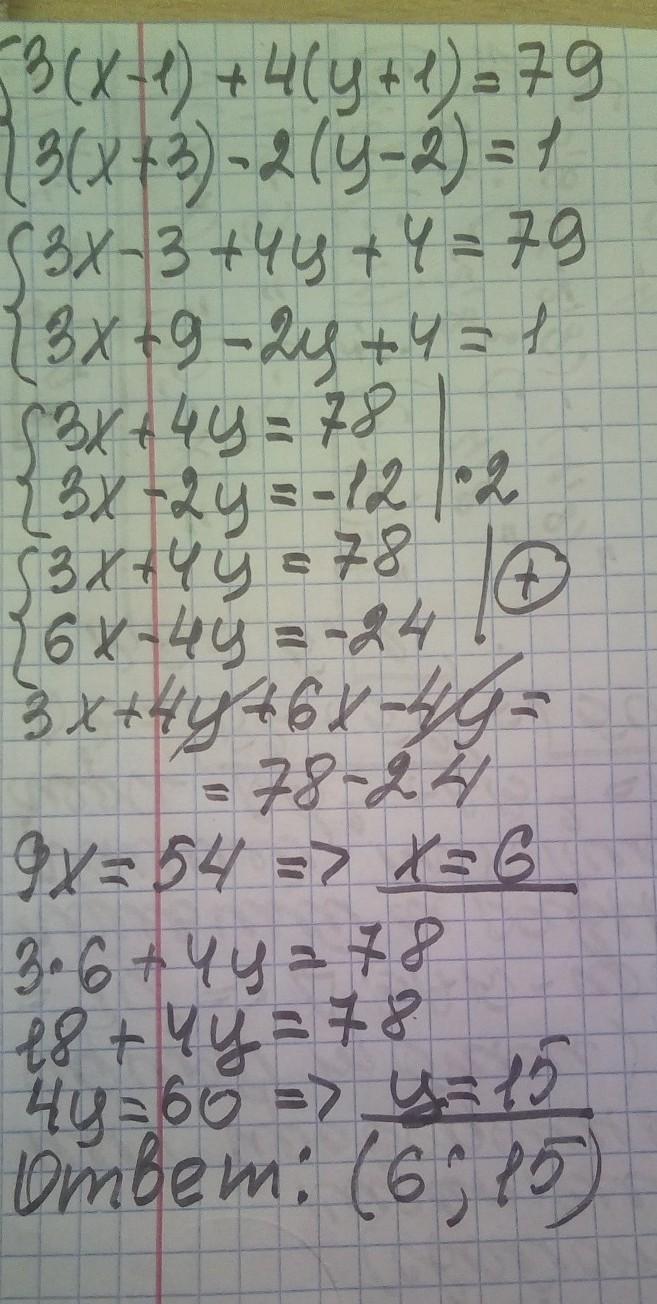 {3(x-1)+4(y+1)=79
{3(x+3)-2(y-2)=1
{3x-3+4y+4=79
{3x+9-2y+4=1
{3x+4y=78 |
{3x-2y=-12 | ·2
{3x+4y=78 | ⊕
{6x-4y=-24 |
3x+4y+6x-4y=
=78-24
9x=54 => x=6
3·6+4y=78
18+4y=78
4y=60 => y=15
Ответ: (6; 15)